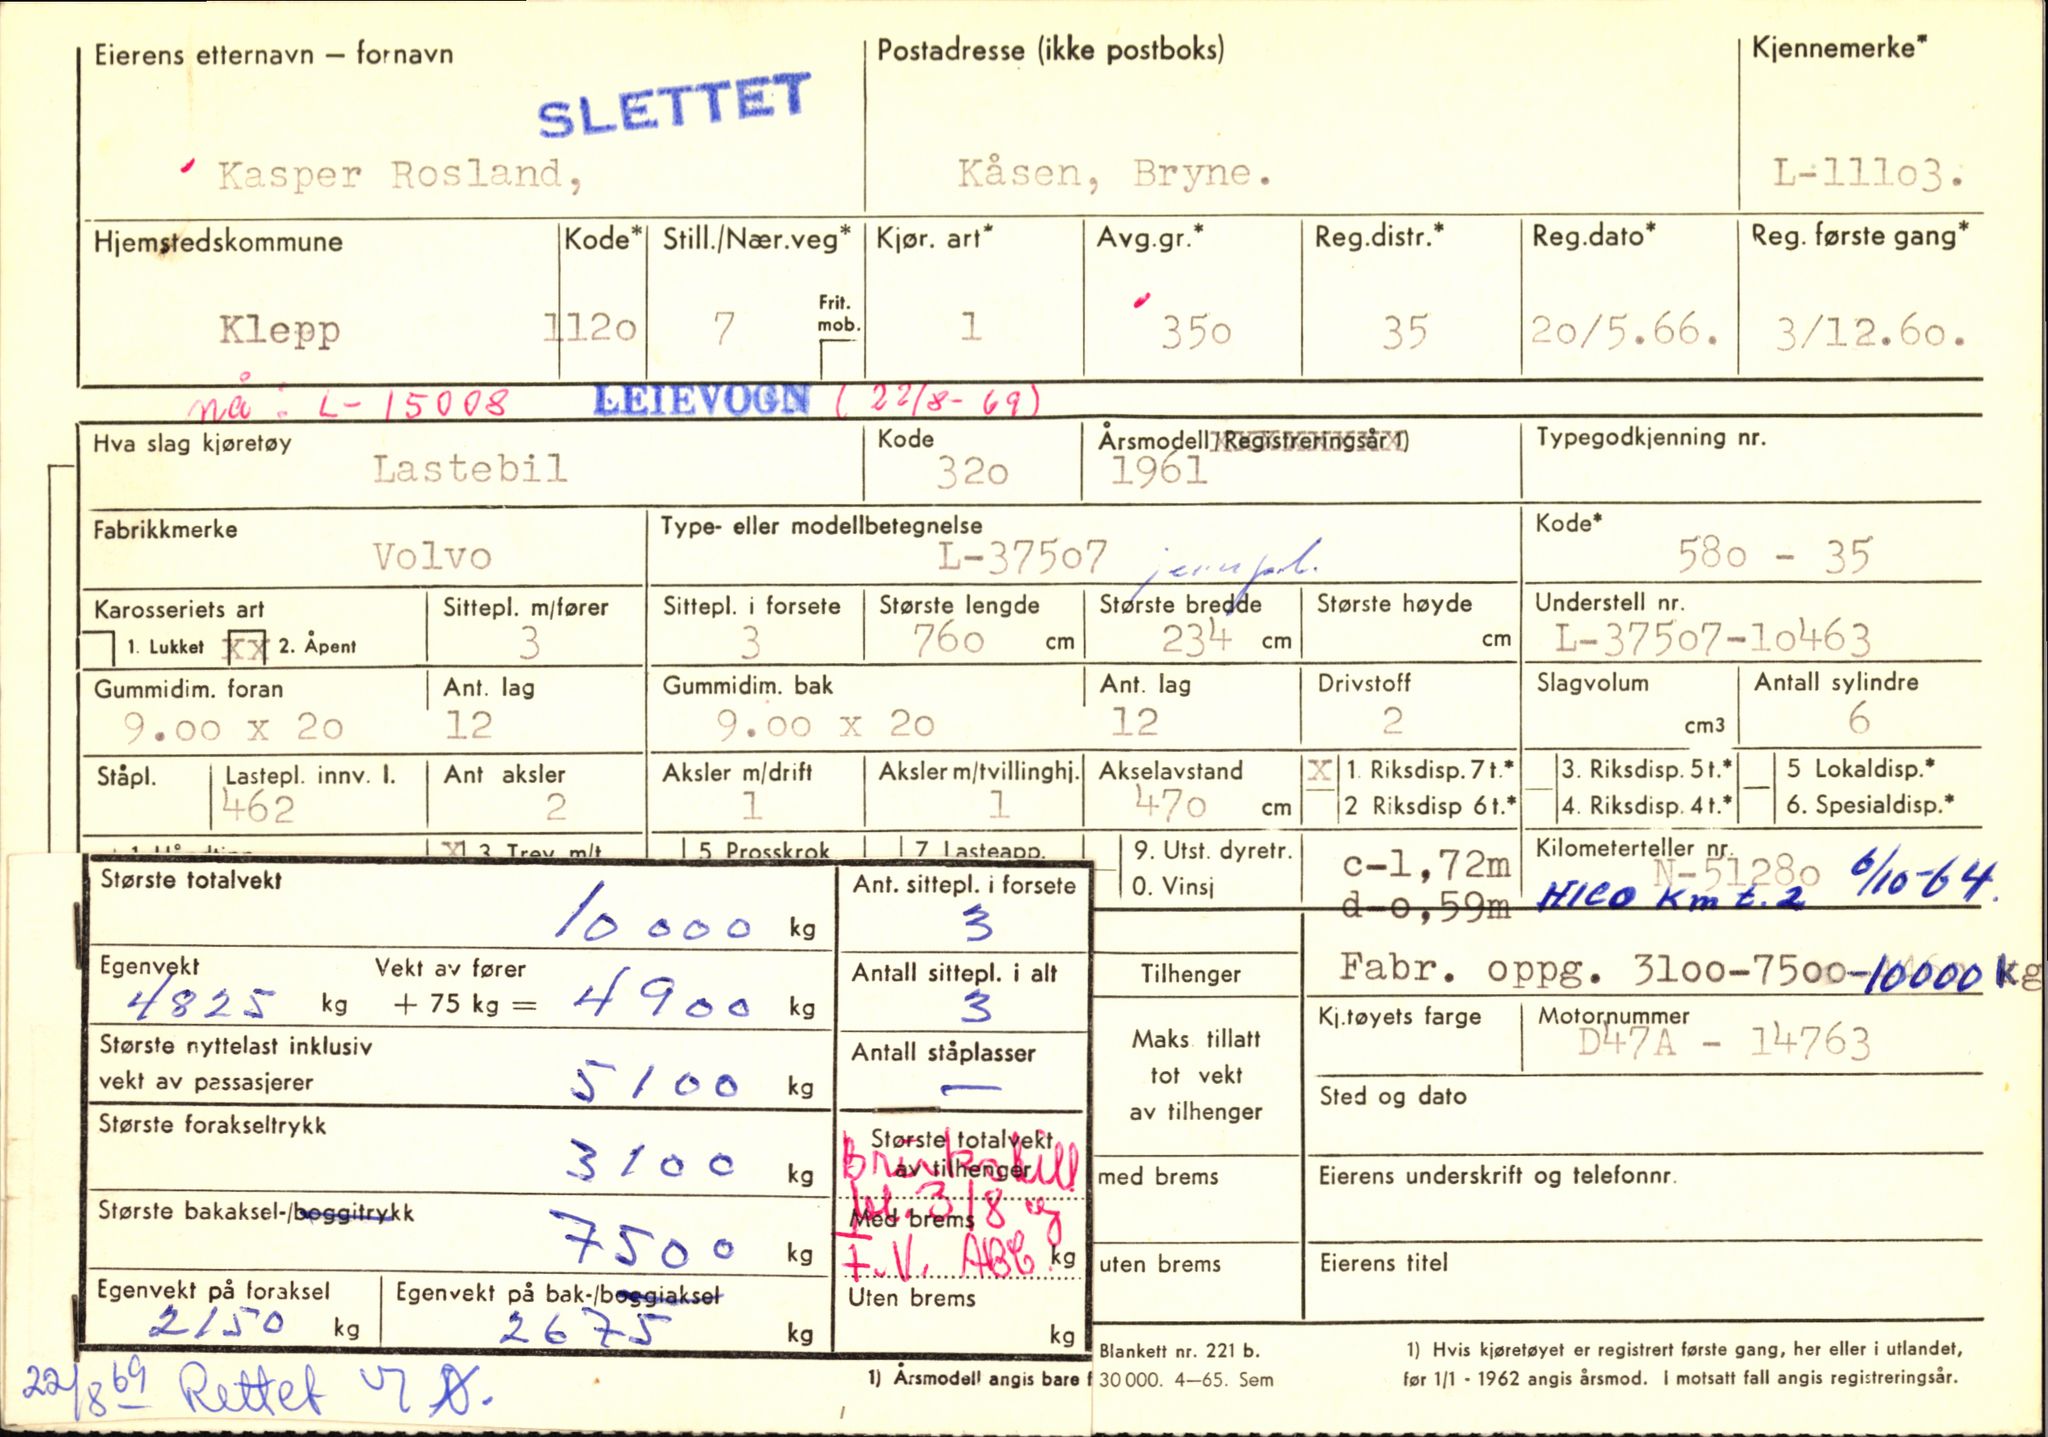 Eierens etternavn – fornavn Postadresse (ikke postboks) Kjennemerke*
SLETTET
Kasper Rosland, Kåsen, Bryne. L-111o3.
Hjemstedskommune Kode* Still./Nær.veg* Kjør. art* Avg.gr.* Reg.distr.* Reg.dato* Reg. første gang*
Frit. mob.
Klepp 112o 7 1 35o 35 2o/5.66. 3/12.6o.
nå: L-15008 LEIEVOGN (22/8-69)
Hva slag kjøretøy Kode Årsmodell/Registreringsår 1) Typegodkjenning nr.
Lastebil 32o 1961
Fabrikkmerke Type- eller modellbetegnelse Kode*
Volvo L-375o7 58o - 35
Karosseriets art Sittepl. m/fører Sittepl. i forsete Største lengde Største bredde Største høyde Understell nr.
1. Lukket xx 2. Åpent 3 3 76o cm 234 cm cm L-375o7-1o463
Gummidim. foran Ant. lag Gummidim. bak Ant. lag Drivstoff Slagvolum Antall sylindre
9.oo x 2o 12 9.oo x 2o 12 2 cm3 6
Ståpl. Lastepl. innv. l. Ant aksler Aksler m/drift Aksler m/tvillinghj. Akselavstand X 1. Riksdisp. 7 t.* 3. Riksdisp. 5 t.* 5 Lokaldisp.*
462 2 1 1 47o cm 2 Riksdisp 6 t.* 4. Riksdisp. 4 t.* 6. Spesialdisp.*
X 3 Trev. m/t 5 Prosskrok 7 Lasteapp. 9. Utst. dyretr. c-1,72m Kilometerteller nr.
0. Vinsj d-o,59m N-5128o 6/10-64.
HICO Km t. 2
Største totalvekt 10000 kg Ant. sittepl. i forsete 3
Egenvekt 4825 kg Vekt av fører + 75 kg = 4900 kg Antall sittepl. i alt 3
Tilhenger Fabr. oppg. 31oo-75oo-10000 kg
Største nyttelast inklusiv vekt av passasjerer 5100 kg Antall ståplasser —
Maks. tillatt tot vekt av tilhenger Kj.tøyets farge Motornummer
D47A - 14763
Sted og dato
Største forakseltrykk 3100 kg Største totalvekt av tilhenger
med brems Eierens underskrift og telefonnr.
Største bakaksel-/boggitrykk 7500 kg Med brems kg
318 og
F.V. ABC
uten brems Eierens titel
Egenvekt på foraksel 2150 kg Egenvekt på bak-/boggiaksel 2675 kg Uten brems kg
Blankett nr. 221 b. 1) Hvis kjøretøyet er registrert første gang, her eller i utlandet,
1) Årsmodell angis bare f 30 000. 4–65. Sem før 1/1 - 1962 angis årsmod. I motsatt fall angis registreringsår.
22/8 69 Rettet